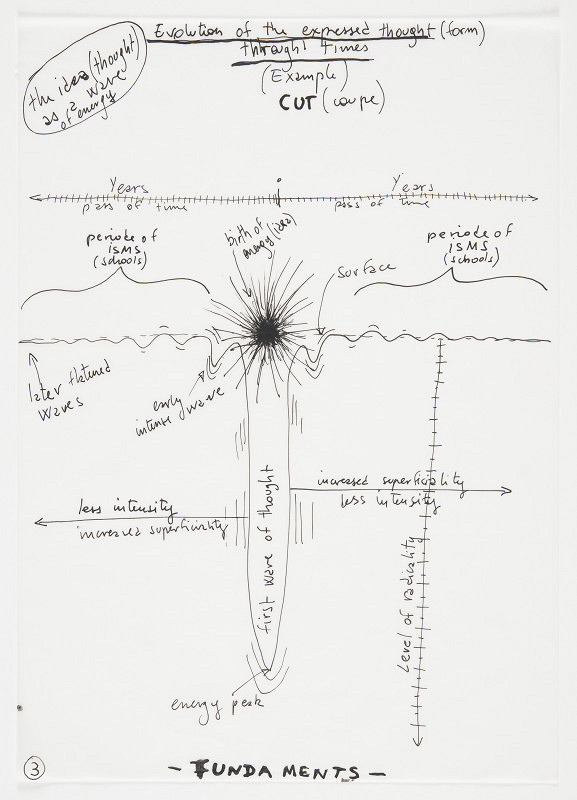 Evolution of the expressed thought (form)
through times
(Example)
CUT (coupe)
the idea (thought)
as a wave
of energy
Years
pass of time
Years
pass of time
periode of
ISMS
(schools)
birth of
energy (idea)
surface
periode of
ISMS
(schools)
later flatened
waves
early
intense wave
first wave of thought
less intensity
increased superficiality
increased superficiality
less intensity
Level of radicality
energy peak
3
- FUNDAMENTS -